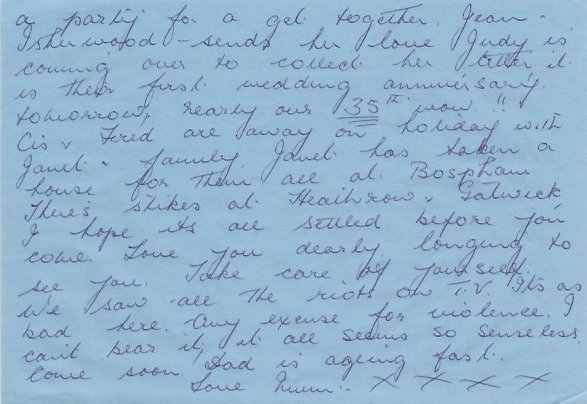 a party for a get together. Jean -
Isherwood - sends her love Judy is
coming over to collect her later it
is their first wedding anniversary.
tomorrow, nearly our 35th wow!!
Cis & Fred are away on holiday with
Janet & family. Janet has taken a
house for them all at Bospham
There's stikes at Heathrow & Gatwick
I hope its all settled before you
come. Love you dearly longing to
see you. Take care of yourself.
We saw all the riots on T.V. Its as
bad here. Any excuse for violence. I
can't bear it, it all seems so senseless.
Come soon, Dad is ageing fast.
Love Mum. X X X X